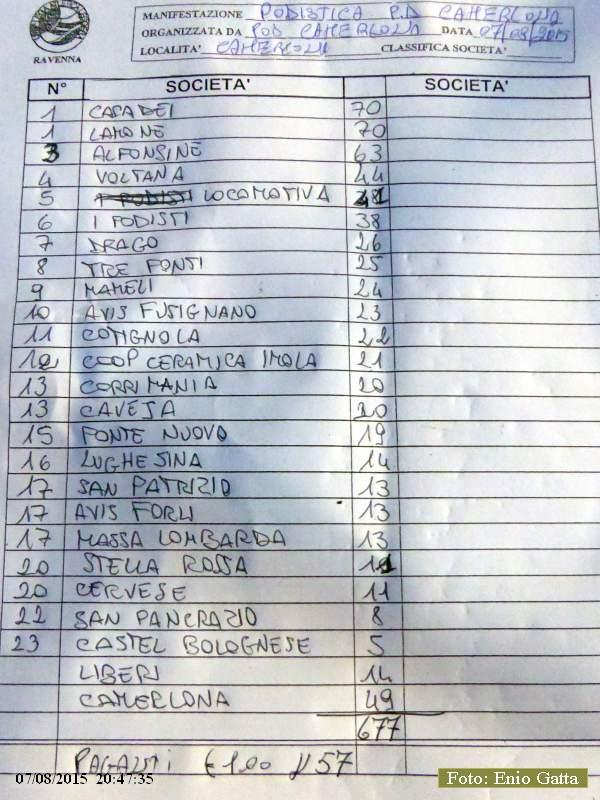 RAVENNA
MANIFESTAZIONE PODISTICA P.D CAMERLONA
ORGANIZZATA DA POD CAMERLONA DATA 07/08/2015
LOCALITA' CAMERLONA CLASSIFICA SOCIETA'
N° SOCIETA' SOCIETA'
1 CASADEI 70
1 LAMONE 70
3 ALFONSINE 63
4 VOLTANA 44
5 I PODISTI LOCOMOTIVA 41
6 I PODISTI 38
7 DRAGO 26
8 TRE FONTI 25
9 MAMELI 24
10 AVIS FUSIGNANO 23
11 COTIGNOLA 22
12 COOP CERAMICA IMOLA 21
13 CORRIMANIA 20
13 CAVEJA 20
15 FONTE NUOVO 19
16 LUGHESINA 14
17 SAN PATRIZIO 13
17 AVIS FORLI 13
17 MASSA LOMBARDA 13
20 STELLA ROSSA 11
20 CERVESE 11
22 SAN PANCRAZIO 8
23 CASTEL BOLOGNESE 5
LIBERI 14
CAMERLONA 49
677
PAGANTI € 1,00 N 57
07/08/2015 20:47:35
Foto: Enio Gatta